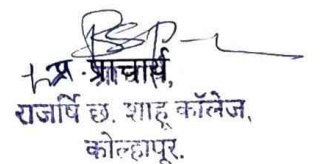 प्र. प्राचार्य,
राजर्षि छ. शाहू कॉलेज,
कोल्हापूर.